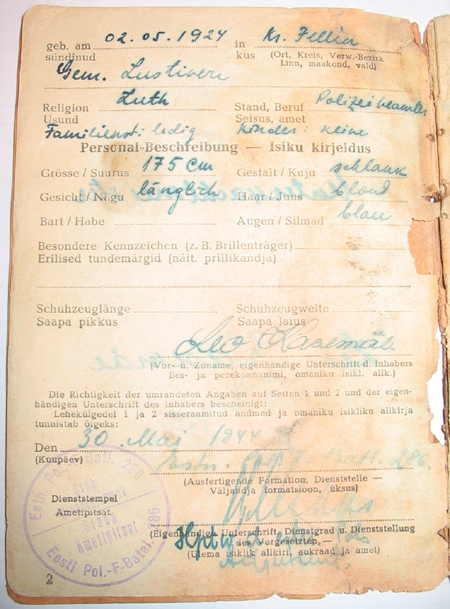 geb. am 02.05.1924 in Kr. Fellin
sündinud kus (Ort, Kreis, Verw.-Bezirk
Linn, maakond, vald)
Gem. Lustivere
Religion Luth Stand, Beruf Polizeibeamter
Usund Seisus, amet
Familienst: ledig Kinder: keine
Personal-Beschreibung — Isiku kirjeldus
Grösse / Suurus 175 cm Gestalt / Kuju schlank
Gesicht / Nägu länglich Haar / Juus blond
Bart / Habe Augen / Silmad blau
Besondere Kennzeichen (z. B. Brillenträger)
Erilised tundemärgid (näit. prillikandja)
Schuhzeuglänge Schuhzeugweite
Saapa pikkus Saapa laius
Leo Kasemäe
(Vor- u. Zuname, eigenhändige Unterschrift d. Inhabers
Ees- ja perekonnanimi, omaniku isikl. allk.)
Die Richtigkeit der umrandeten Angaben auf Seiten 1 und 2 und der eigen-
händigen Unterschrift des Inhabers bescheinigt:
Lehekülgedel 1 ja 2 sisseraamitud andmed ja omaniku isikliku allkirja
tunnistab õigeks:
Den 30. Mai 1944
(Kuupäev) Estn. Pol. F. Batl. 286
(Ausfertigende Formation, Dienststelle —
Väljaandja formatsioon, üksus)
Dienststempel
Ametipitsat
(Eigenhändige Unterschrift, Dienstgrad u. Dienststellung
des Vorgesetzten, —
(Ülema isiklik alikiri, aukraad ja amet)
Adjutant
Eesti Pol.-F.-Batal. 286
2